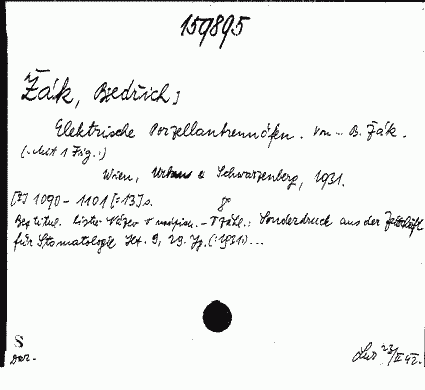 159895
Žák, Bedřich;
Elektrische Porzellanbrennöfen. Von - B. Žák.
(:Mit 1 Fig.:)
Wien, Urban & Schwarzenberg, 1931.
[S] 1090 - 1101 [=13] s. 8°
Bez titul. listu. Název v nadpisu. - V záhl.: Sonderdruck aus der Zeitschrift
für Stomatologie Hf. 9, 29. Jg. (:1931:) ...
S
Dar.